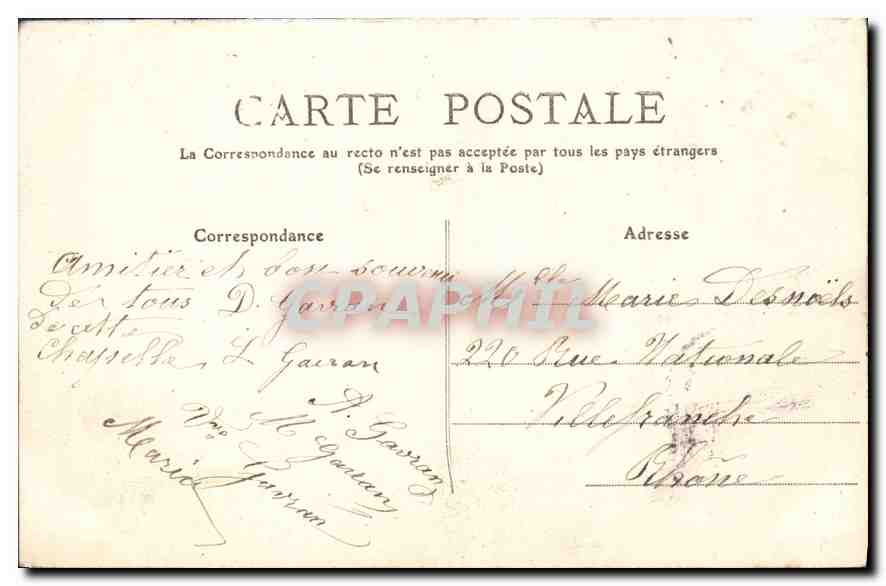 CARTE POSTALE
La Correspondance au recto n'est pas acceptée par tous les pays étrangers
(Se renseigner à la Poste)
Correspondance
Amitier et bon souveni
De tous D. Gavran
De cette
Chapelle L Gavran
A. Gavran
M Gavran
Vve Gavran
Marie
Adresse
Mlle Marie Desnoëls
220 Rue Nationale
Villefranche
Rhône
CPARAMA